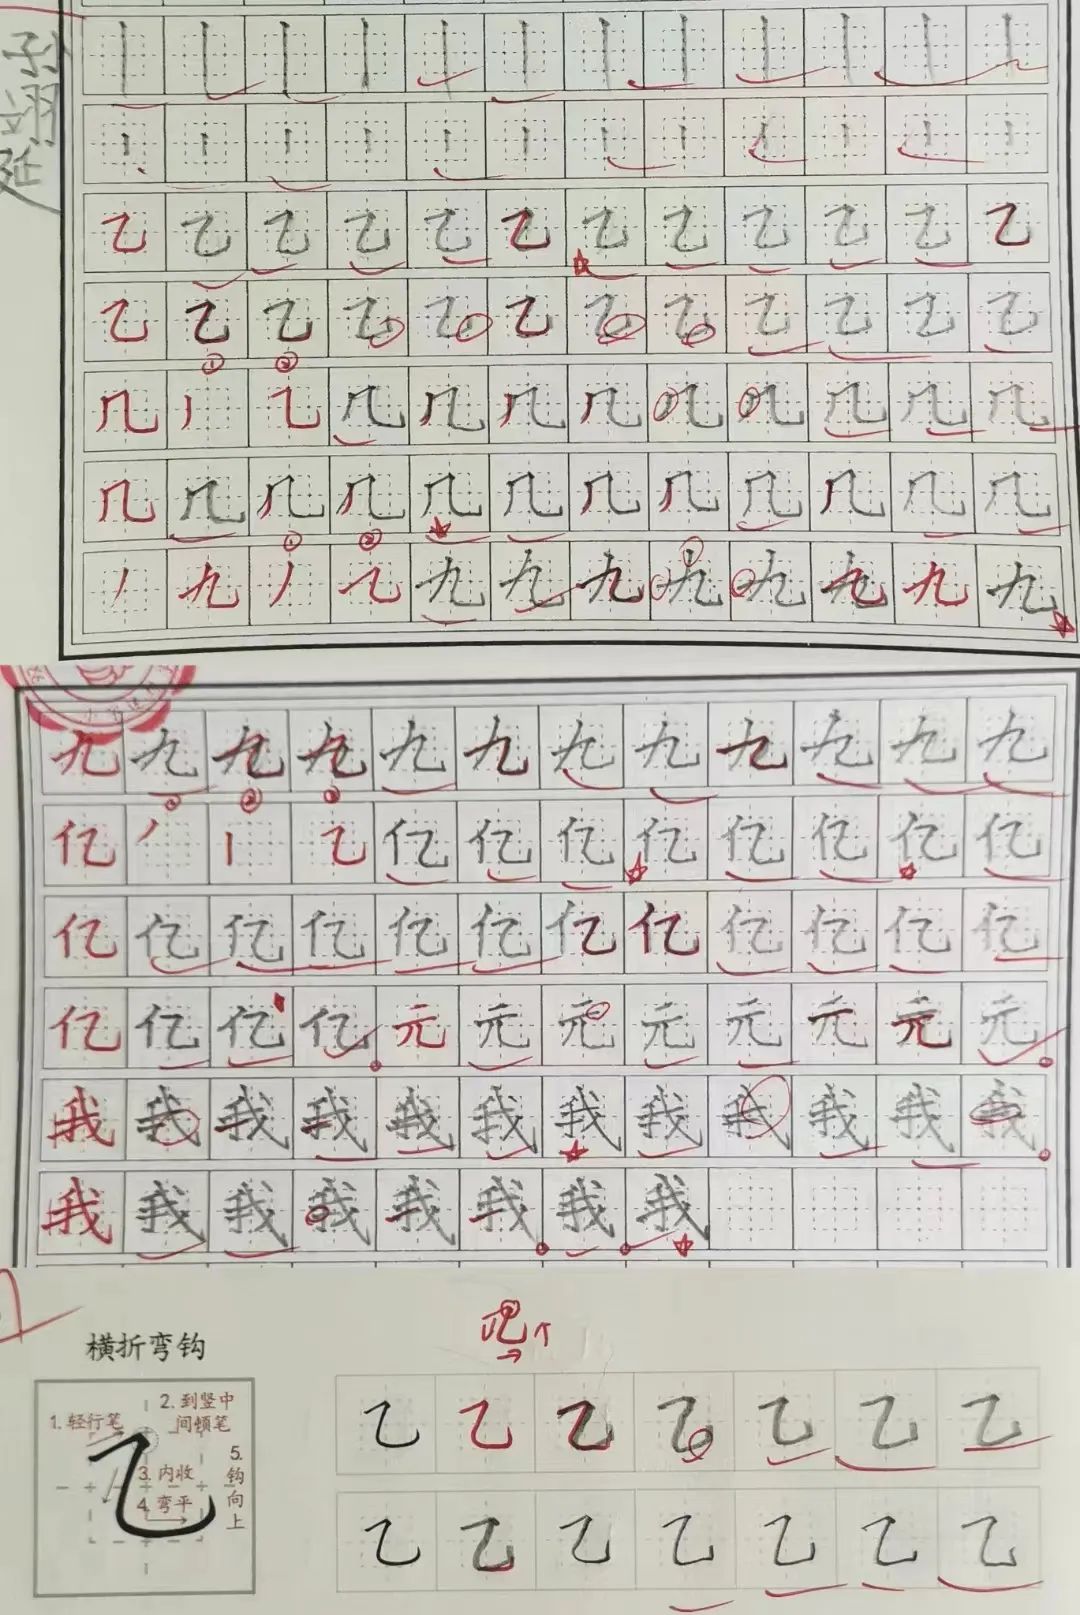 孙翊延
丨丨丨丨丨丨丨丨丨丨丨丨
丨丨丨丨丨丨丨丨丨丨丨丨
乙乙乙乙乙乙乙乙乙乙乙乙
乙乙乙乙乙乙乙乙乙乙乙乙
① ②
几丿乙几几几几几几几几几
几几几几几几几几几几几几
① ②
丿九丿乙九九九九九九九九
九九九九九九九九九九九九
① ② ③
亿丿丨乙亿亿亿亿亿亿亿亿
亿亿亿亿亿亿亿亿亿亿亿亿
亿亿亿亿元元元元元元元元
我我我我我我我我我我我我
我我我我我我我我
横折弯钩
1. 轻行笔
2. 到竖中间顿笔
3. 内收
4. 弯平
5. 钩向上
乙乙乙乙乙乙乙
乙乙乙乙乙乙乙